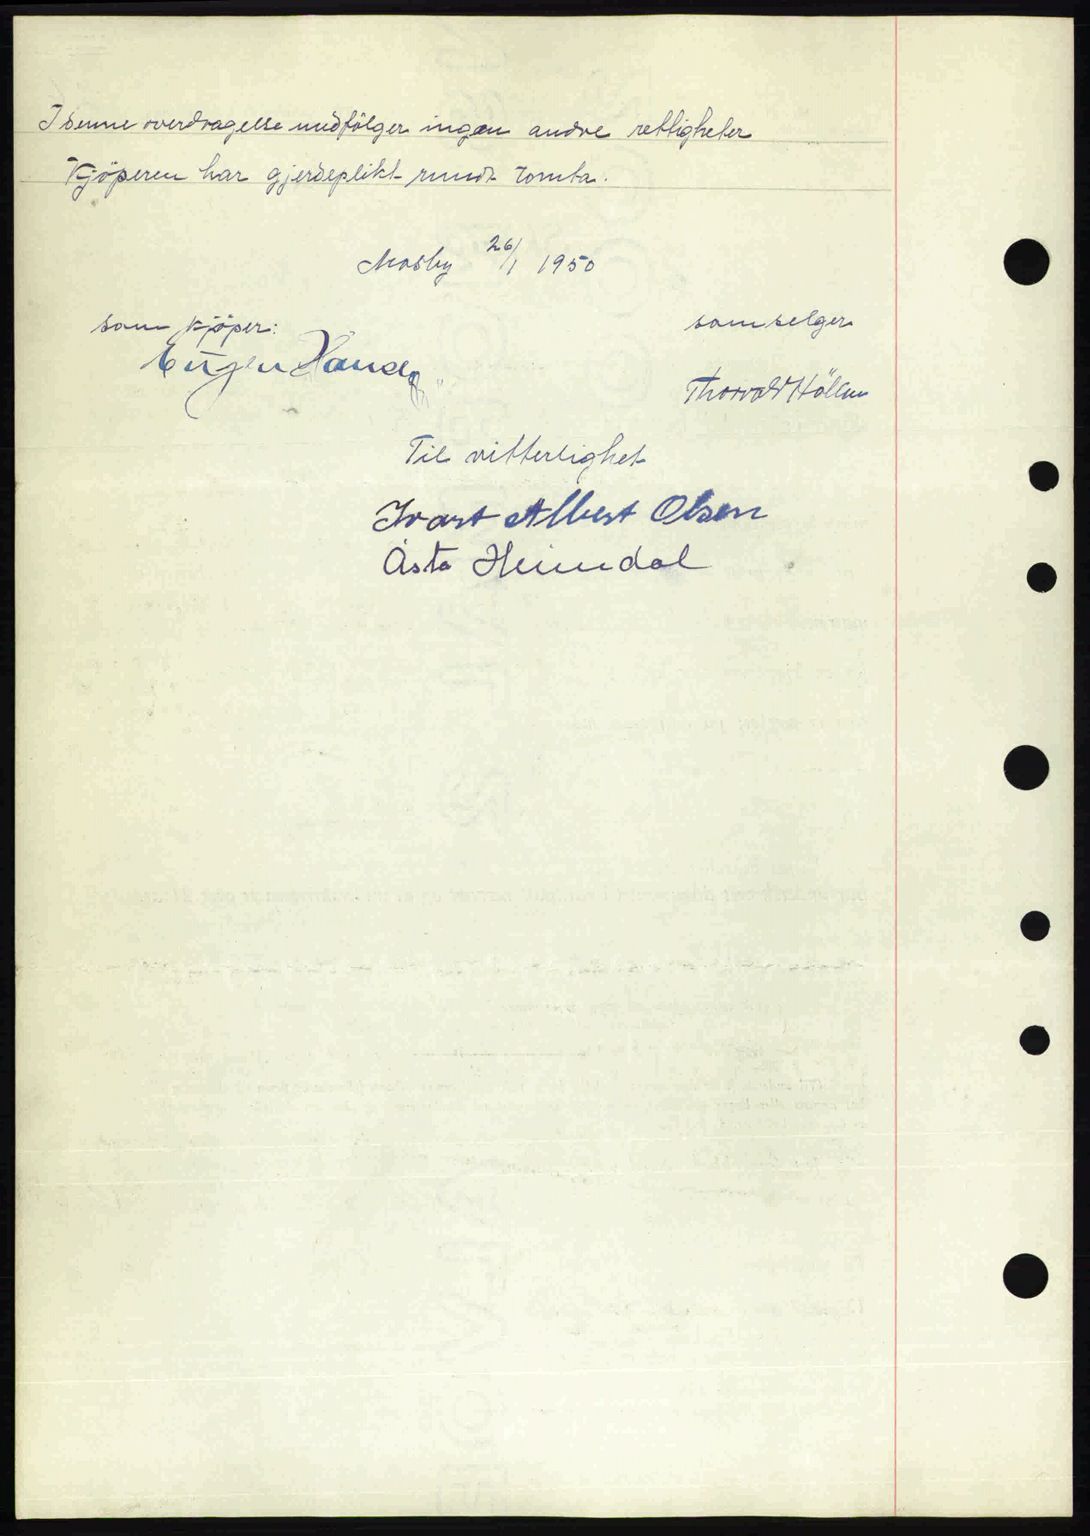 I denne overdragelse medfölger ingen andre rettigheter
Kjöperen har gjerdeplikt rundt tomta.
Mosby 26/1 1950
som kjöper:
som selger
Eugen
Thorvald
Til vitterlighet
Ivart Albert Olsen
Åsta Heimdal